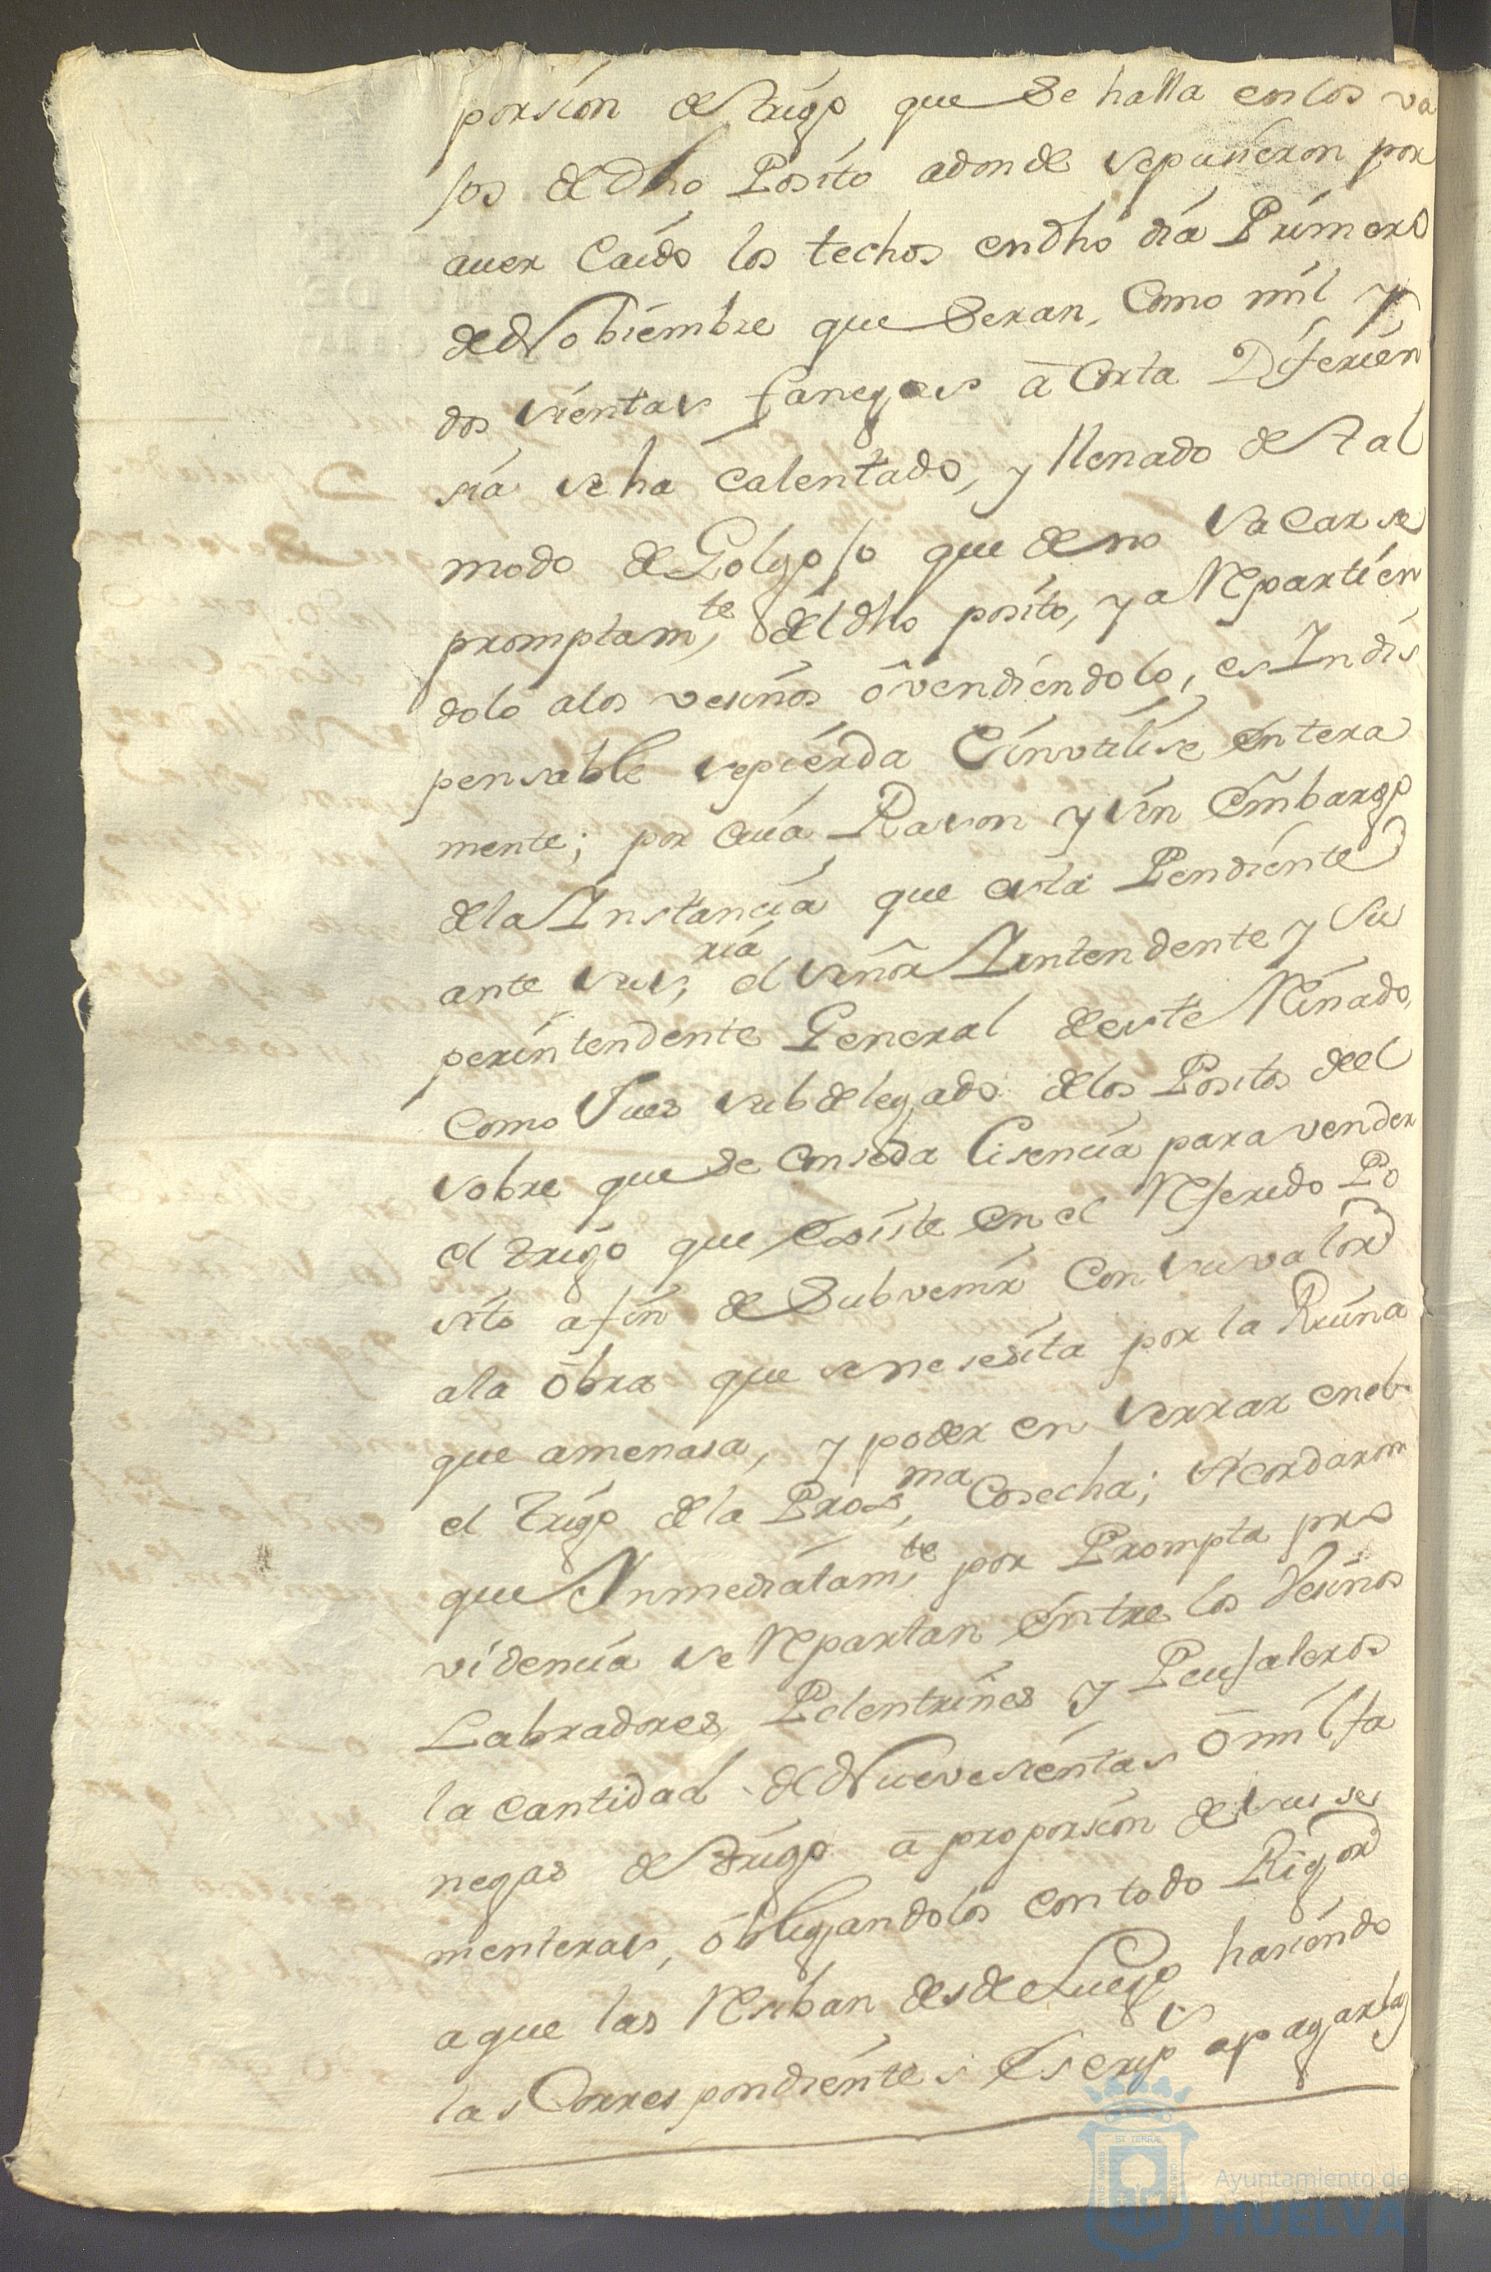 porsion de trigo que se halla en los va
sos de dho Posito adonde sepusieron por
auer Caido los techos endho dia Primero
de Nobiembre que seran, Como mil y
dos sientas fanegas â Corta Diferien
sia seha calentado, y llenado de tal
modo de Golgoso que de no sacarse
promptamte, del dho posito, ya Repartien
dolo alos vesinos ô vendiendolo, es Indis
pensable sepierda E inutilise entera
mente; por cuia Rason y sin embargo
dela Instancia que esta Pendiente
ante susria, el señor Intendente y Su
perintendente General deeste Reinado,
Como Jues subdelegado delos Positos deel
sobre que se conseda Lisencia para vender
el trigo que existe en el Referido Po
sito a fin de Subvenir Con su valor
ala obra que se nesesita por la Ruina
que amenasa, y poder en serrar enel
el trigo dela Proxma, Cosecha; Acordaron
que Inmediatamte, por Prompta pro
videncia se Repartan entre los Vesinos
Labradores, Pelentrines y Peujaleros
la cantidad de Nuevesientas ô mil fa
negas de trigo â proporsion desus se
menteras, obligandolos con todo Rigor
aque las Resiban desde Luego hasiendo
las Correspondientes Escrips apagarlas
Ayuntamiento de
HUELVA